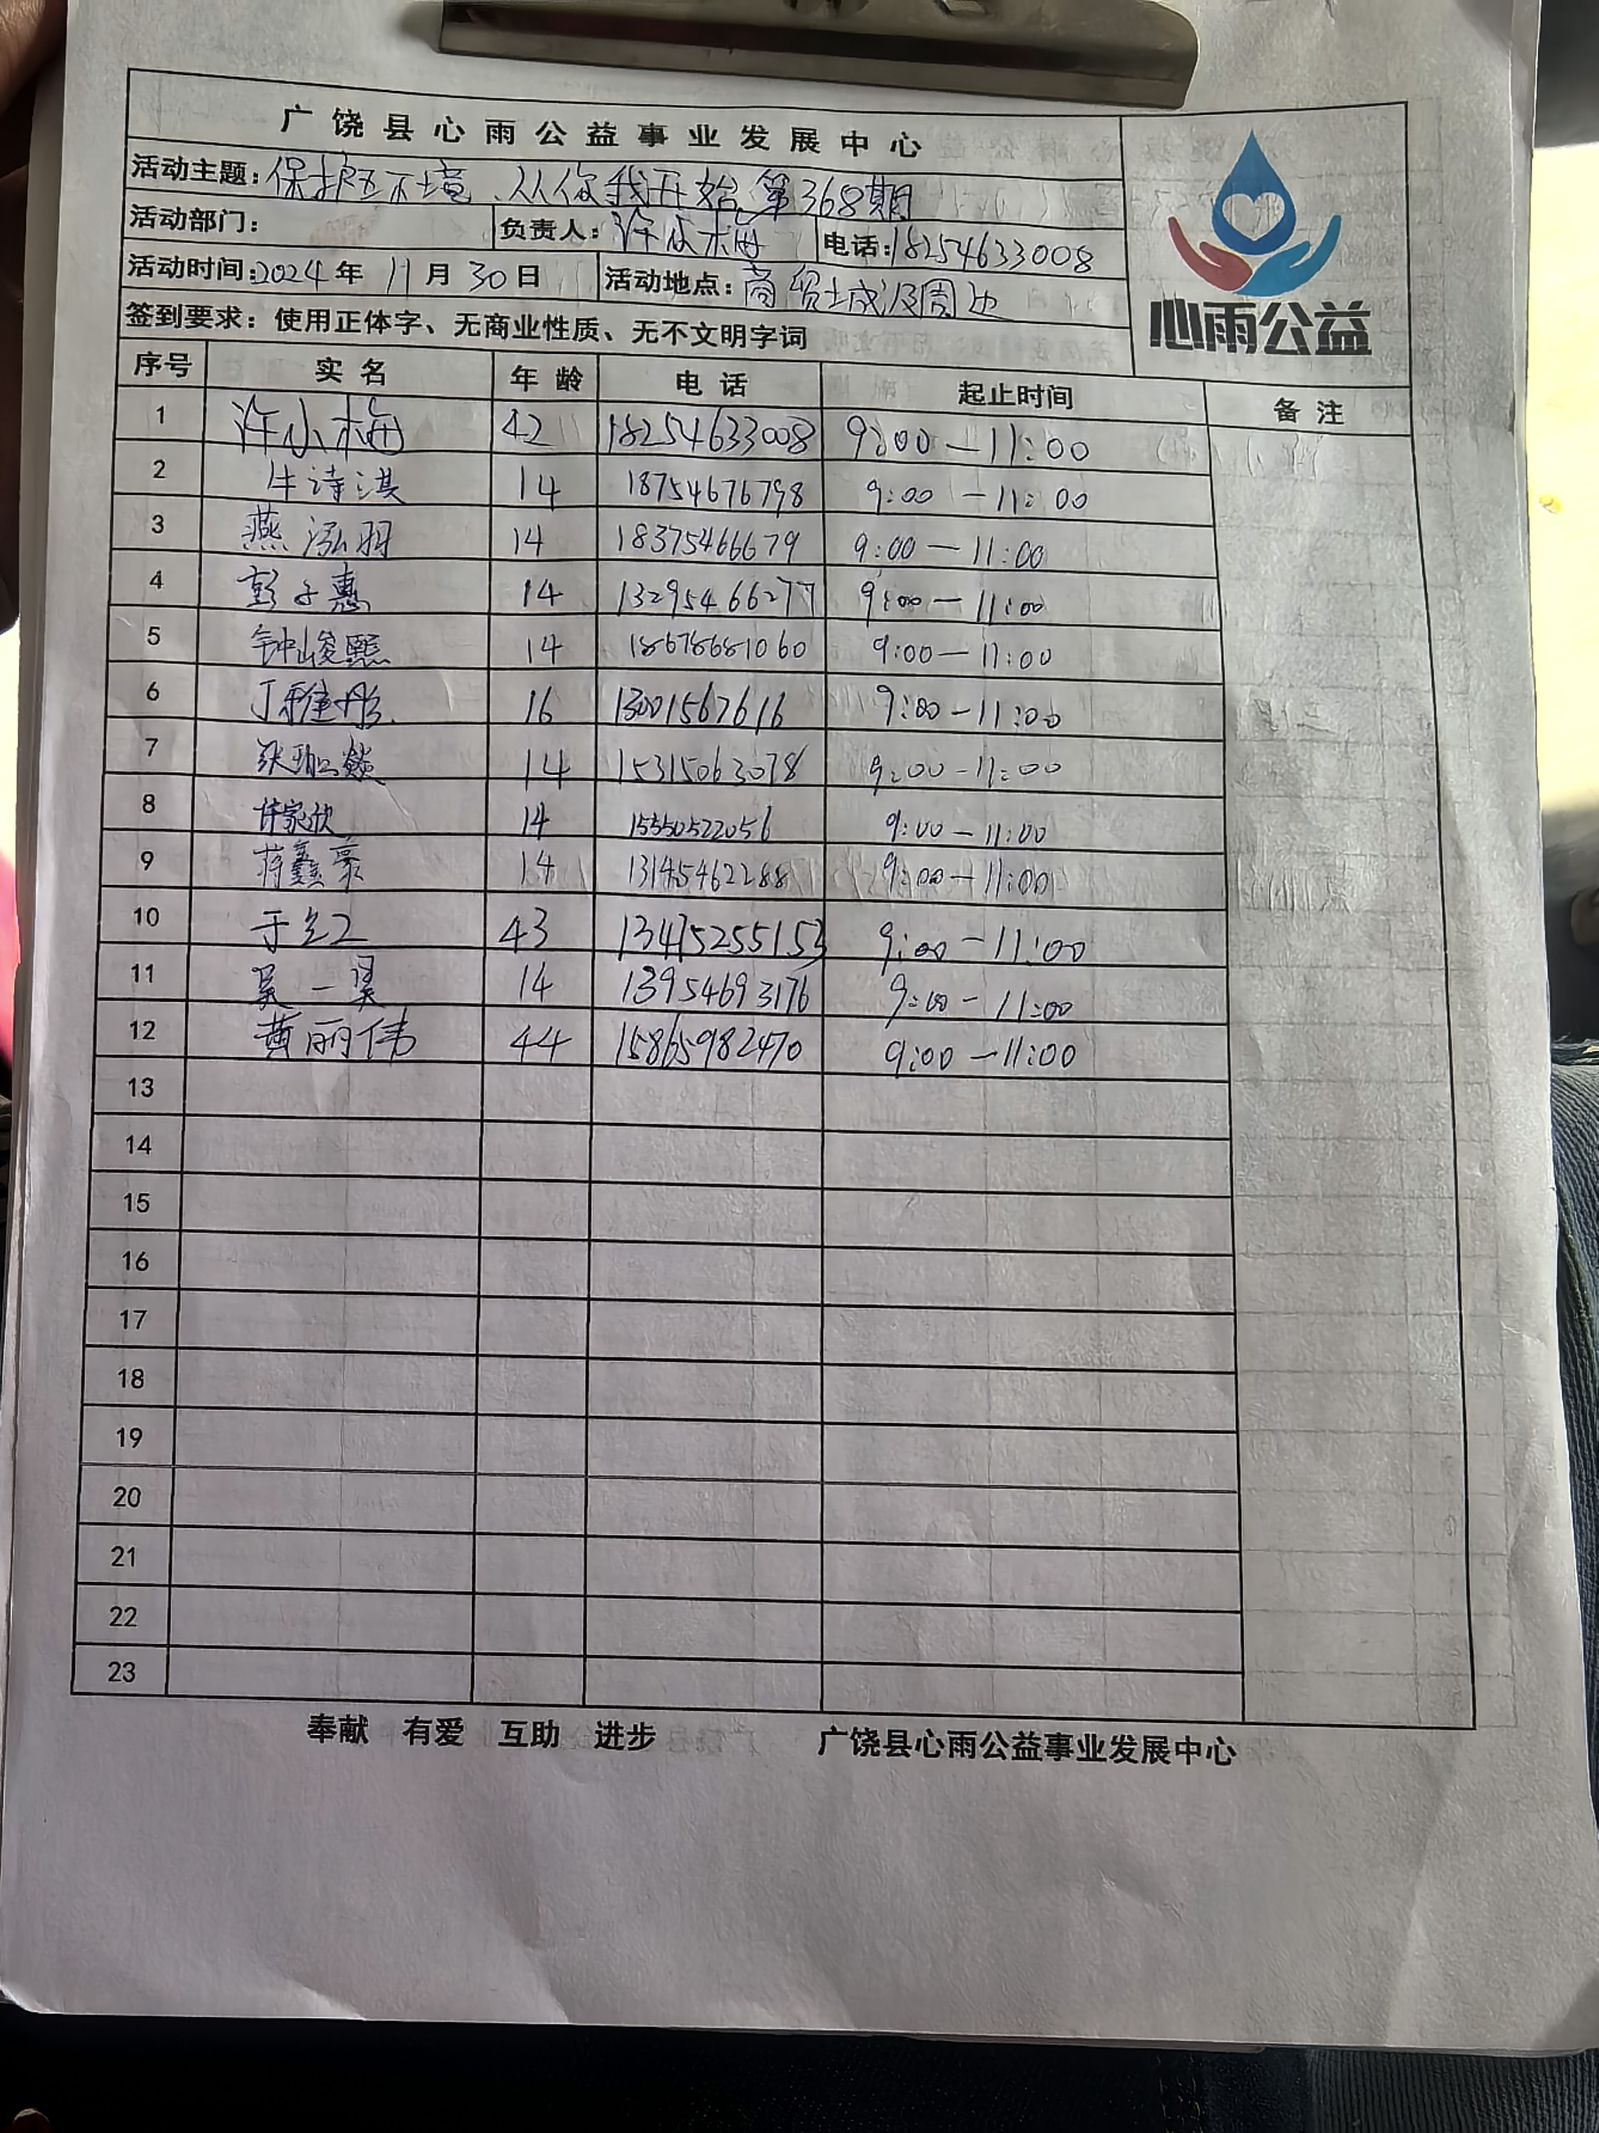 广饶县心雨公益事业发展中心
活动主题：保护环境、从你我开始 第368期
活动部门：　负责人：许小梅　电话：18254633008
活动时间：2024年 11月 30日　活动地点：商贸城及周边
心雨公益
签到要求：使用正体字、无商业性质、无不文明字词
序号　实名　年龄　电话　起止时间　备注
1　许小梅　42　18254633008　9:00—11:00
2　牛诗淇　14　18754676798　9:00—11:00
3　燕泓羽　14　18375466679　9:00—11:00
4　彭子惠　14　13295466277　9:00—11:00
5　钟峻熙　14　18678681060　9:00—11:00
6　丁雅彤　16　13001567616　9:00—11:00
7　张　14　15315063078　9:00—11:00
8　许家欣　14　15550522056　9:00—11:00
9　蒋鑫豪　14　13145462288　9:00—11:00
10　于红　43　13475255153　9:00—11:00
11　吴一昊　14　13954693176　9:00—11:00
12　黄丽伟　44　15865982470　9:00—11:00
13
14
15
16
17
18
19
20
21
22
23
奉献　有爱　互助　进步　广饶县心雨公益事业发展中心